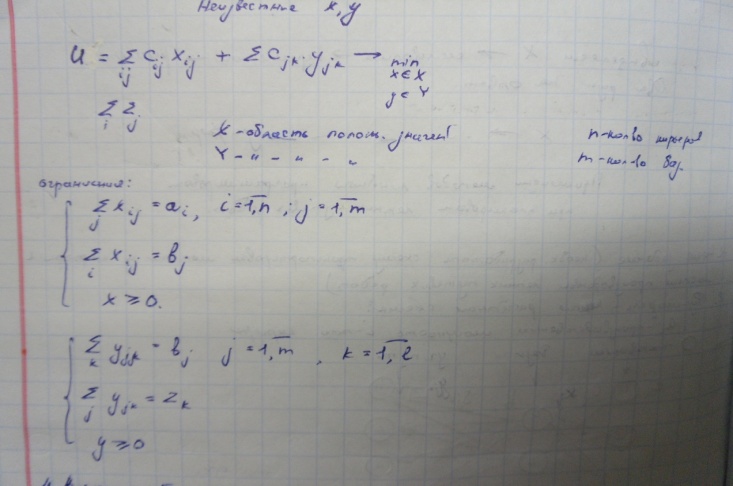 Неизвестные x, y
U = Σ_{ij} c_{ij} x_{ij} + Σ c_{jk} y_{jk} → min
x ∈ X
y ∈ Y
Σ_i Σ_j
X - область полож. значений
Y - " - " - " - "
n - кол-во карьеров
m - кол-во
ограничения:
Σ_j x_{ij} = a_i, i = \overline{1,n} ; j = \overline{1,m}
Σ_i x_{ij} = b_j
x ≥ 0.
Σ_k y_{jk} = b_j j = \overline{1,m} , k = \overline{1,l}
Σ_j y_{jk} = z_k
y ≥ 0